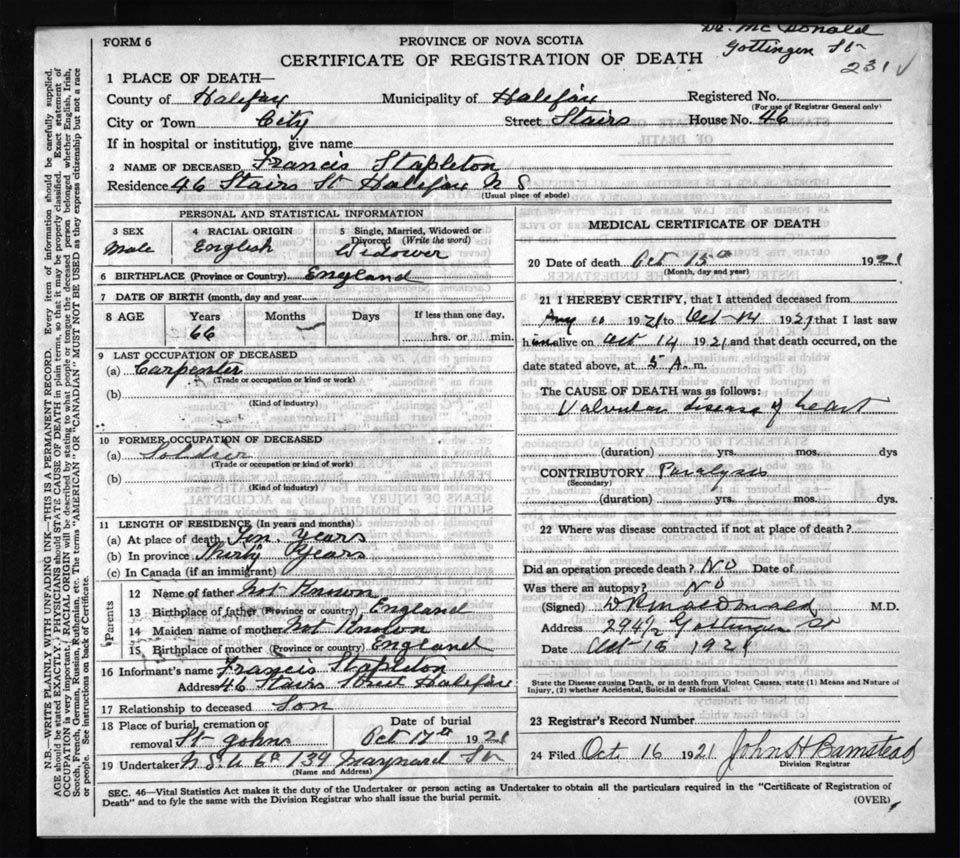 Dr. McDonald
Gottingen St
231 ✓
FORM 6
PROVINCE OF NOVA SCOTIA
CERTIFICATE OF REGISTRATION OF DEATH
1 PLACE OF DEATH—
County of Halifax Municipality of Halifax Registered No.
(For use of Registrar General only)
City or Town City Street Stairs House No. 46
If in hospital or institution, give name
2 NAME OF DECEASED Francis Stapleton
Residence 46 Stairs St Halifax N S
(Usual place of abode)
PERSONAL AND STATISTICAL INFORMATION
3 SEX 4 RACIAL ORIGIN 5 Single, Married, Widowed or
Divorced (Write the word)
Male English Widower
6 BIRTHPLACE (Province or Country) England
7 DATE OF BIRTH (month, day and year)
8 AGE Years Months Days If less than one day,
66 hrs. or min.
9 LAST OCCUPATION OF DECEASED
(a) Carpenter
(Trade or occupation or kind or work)
(b)
(Kind of industry)
10 FORMER OCCUPATION OF DECEASED
(a) Soldier
(Trade or occupation or kind or work)
(b)
(Kind of industry)
11 LENGTH OF RESIDENCE (In years and months)
(a) At place of death Ten Years
(b) In province Thirty Years
(c) In Canada (if an immigrant)
Parents
12 Name of father Not Known
13 Birthplace of father (Province or country) England
14 Maiden name of mother Not Known
15 Birthplace of mother (Province or country) England
16 Informant's name Francis Stapleton
Address 46 Stairs Street Halifax
17 Relationship to deceased Son
18 Place of burial, cremation or Date of burial
removal St Johns Oct 17th 1921
19 Undertaker N.S.U Co 139 Maynard St
(Name and Address)
MEDICAL CERTIFICATE OF DEATH
20 Date of death Oct 15 1921
(Month, day and year)
21 I HEREBY CERTIFY, that I attended deceased from
Aug 10 1921 to Oct 14 1921 that I last saw
him alive on Oct 14 1921 and that death occurred, on the
date stated above, at 5 A. m.
The CAUSE OF DEATH was as follows:
Valvular disease of heart
(duration) yrs. mos. dys
CONTRIBUTORY Paralysis
(Secondary)
(duration) yrs. mos. dys.
22 Where was disease contracted if not at place of death?
Did an operation precede death? No Date of
Was there an autopsy? No
(Signed) M.D.
Address 294½ Gottingen St
Date Oct 16 1921
State the Disease causing Death, or in death from Violent Causes, state (1) Means and Nature of
Injury, (2) whether Accidental, Suicidal or Homicidal.
23 Registrar's Record Number
24 Filed Oct 16 1921 John H Barnstead
Division Registrar
SEC. 46—Vital Statistics Act makes it the duty of the Undertaker or person acting as Undertaker to obtain all the particulars required in the "Certificate of Registration of
Death" and to fyle the same with the Division Registrar who shall issue the burial permit.
(OVER)
N.B.—WRITE PLAINLY WITH UNFADING INK—THIS IS A PERMANENT RECORD. Every item of information should be carefully supplied.
AGE should be stated EXACTLY. PHYSICIANS should STATE CAUSE OF DEATH in plain terms, so that it may be properly classified. Exact statement of
OCCUPATION is very important. RACIAL ORIGIN will be described by stating to what people or tongue the deceased person belonged whether English, Irish,
Scotch, French, German, Russian, Ruthenian, etc. The terms "AMERICAN" OR "CANADIAN" MUST NOT BE USED as they express citizenship but not a race
or people. See instructions on back of Certificate.